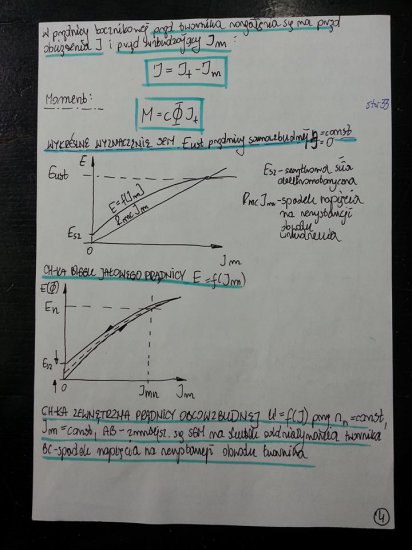 W prądnicy bocznikowej prąd twornika rozgałęzia się na prąd
obciążenia I i prąd wzbudzający Im:
I = It - Im
Moment:
str 33
M = cΦIt
WYKREŚLNE WYZNACZENIE SEM Eust prądnicy samowzbudnej n=const
I=0
E
Eust
E=f(Im)
RmcIm
Esz
0
Im
Esz - szczątkowa siła
elektromotoryczna
RmcIm - spadek napięcia
na rezystancji
obwodu
wzbudzenia
CH-KA BIEGU JAŁOWEGO PRĄDNICY E = f(Im)
E(Φ)
En
Esz
0
Imn
Im
CH-KA ZEWNĘTRZNA PRĄDNICY OBCOWZBUDNEJ U=f(I) przy nn=const,
Im=const, AB - zmniejsz. się SEM na skutek oddziaływania twornika
BC - spadek napięcia na rezystancji obwodu twornika
4